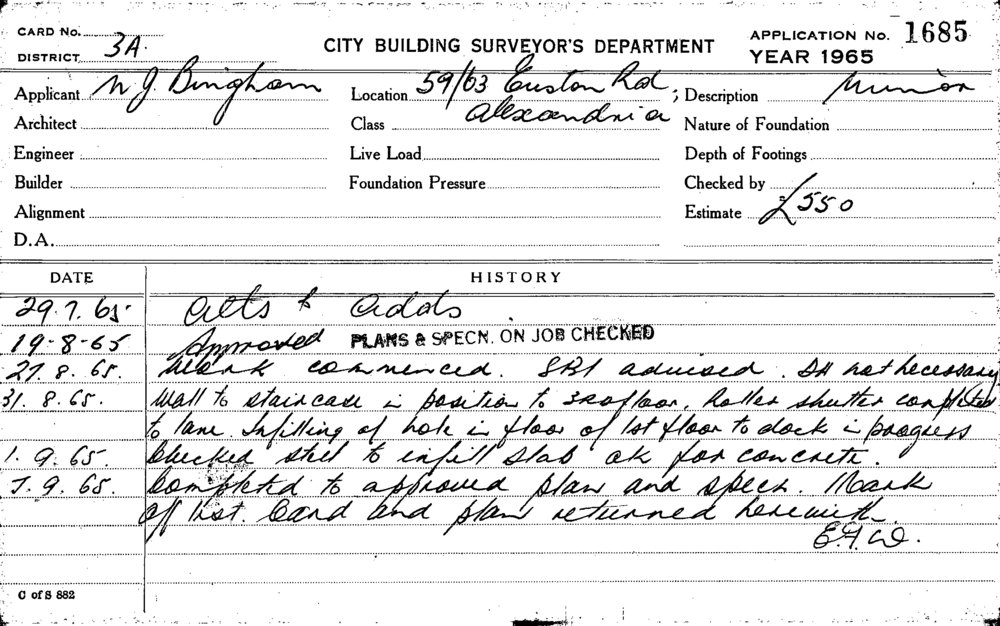 CARD No.
DISTRICT 3A.
CITY BUILDING SURVEYOR'S DEPARTMENT
APPLICATION No. 1685
YEAR 1965
Applicant N J. Bingham
Location 59/63 Euston Rd; Alexandria
Description Minor
Architect
Class
Nature of Foundation
Engineer
Live Load
Depth of Footings
Builder
Foundation Pressure
Checked by
Alignment
Estimate £550
D.A.
DATE HISTORY
29.7.65. Alts & Adds
19-8-65 Approved PLANS & SPECN. ON JOB CHECKED
27.8.65. Work commenced. SBI advised. not necessary
31.8.65. Wall to staircase in position to 3rd floor. Roller shutter completed
to lane. Infilling of hole in floor of 1st floor to dock in progress
1.9.65. Checked steel to infill slab ok for concrete.
7.9.65. Completed to approved plan and specn. Mark
off list. Card and plan returned herewith.
C of S 882